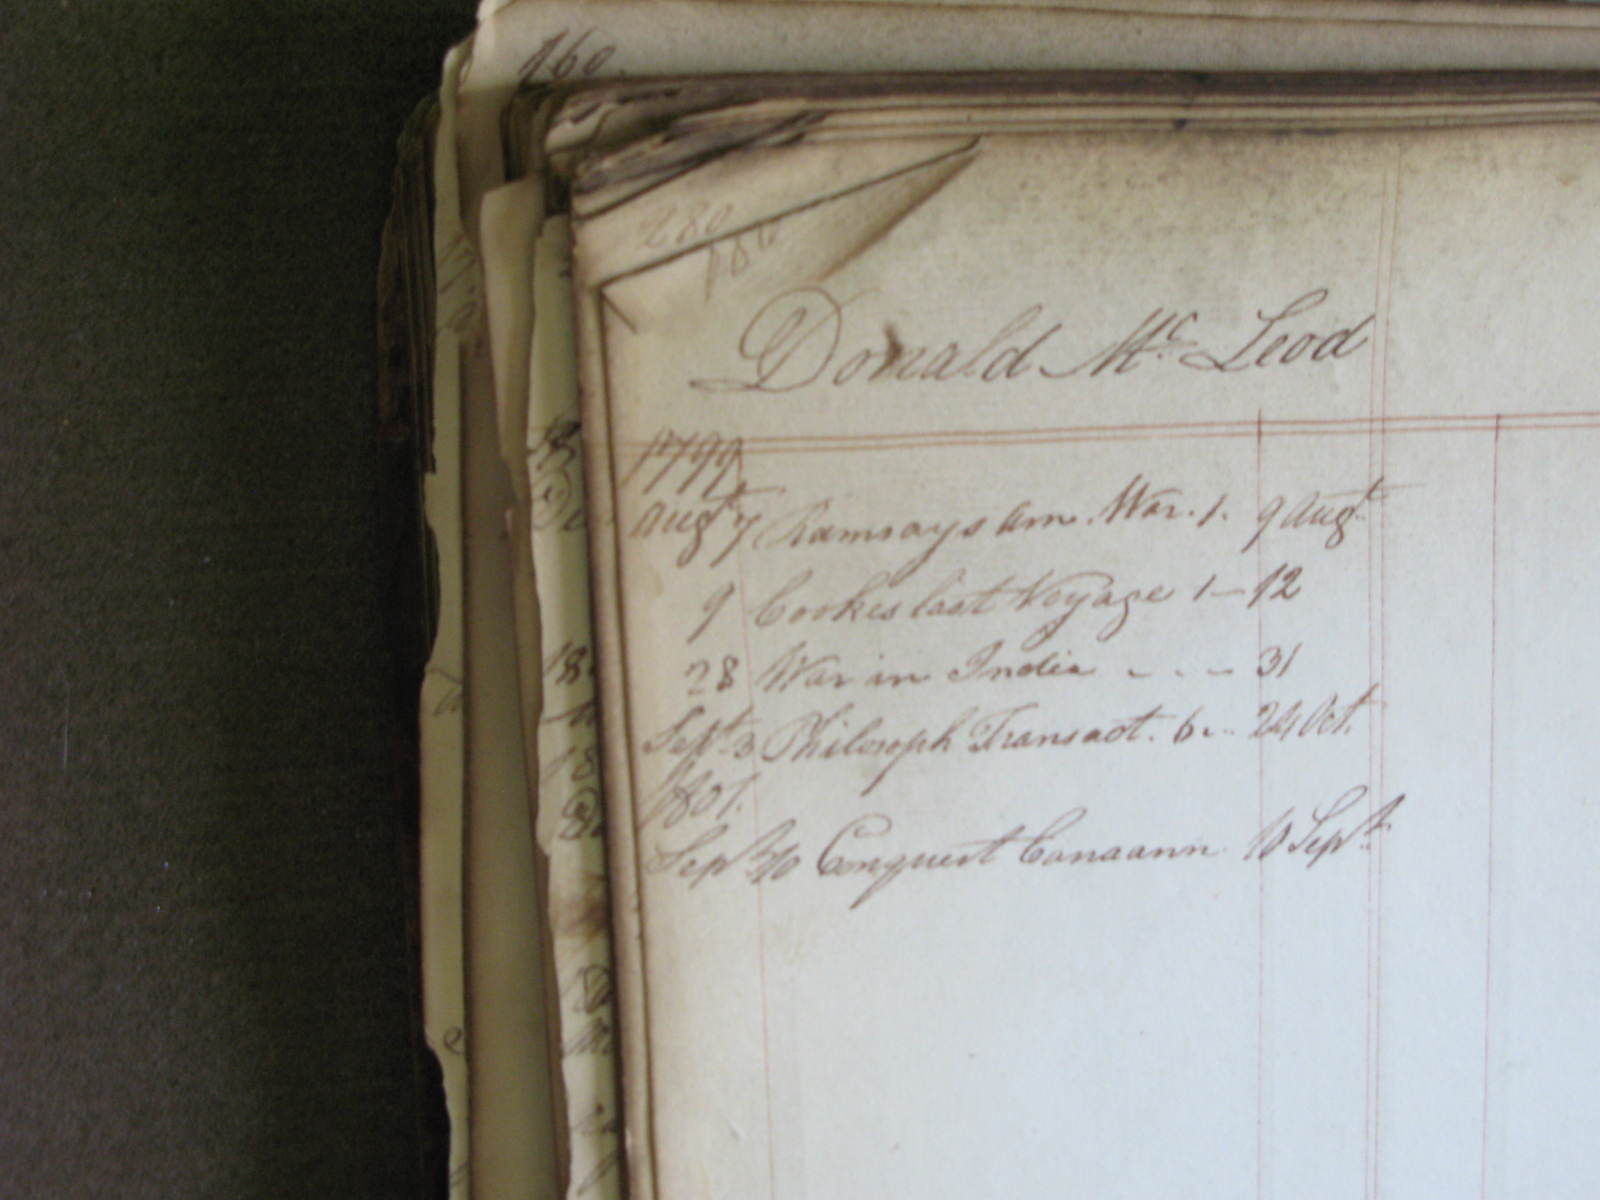 160.
280
180
Donald Mc Leod
1799
Augt 7 Ramsays Am. War. 1. 9 Augt
9 Cookes last Voyage 1 – 12
28 War in India - - - 31
Sept 3 Philosoph Transact. 6 .. 24 Oct.
1801.
Sept 10 Conquest Canaann 10 Sept